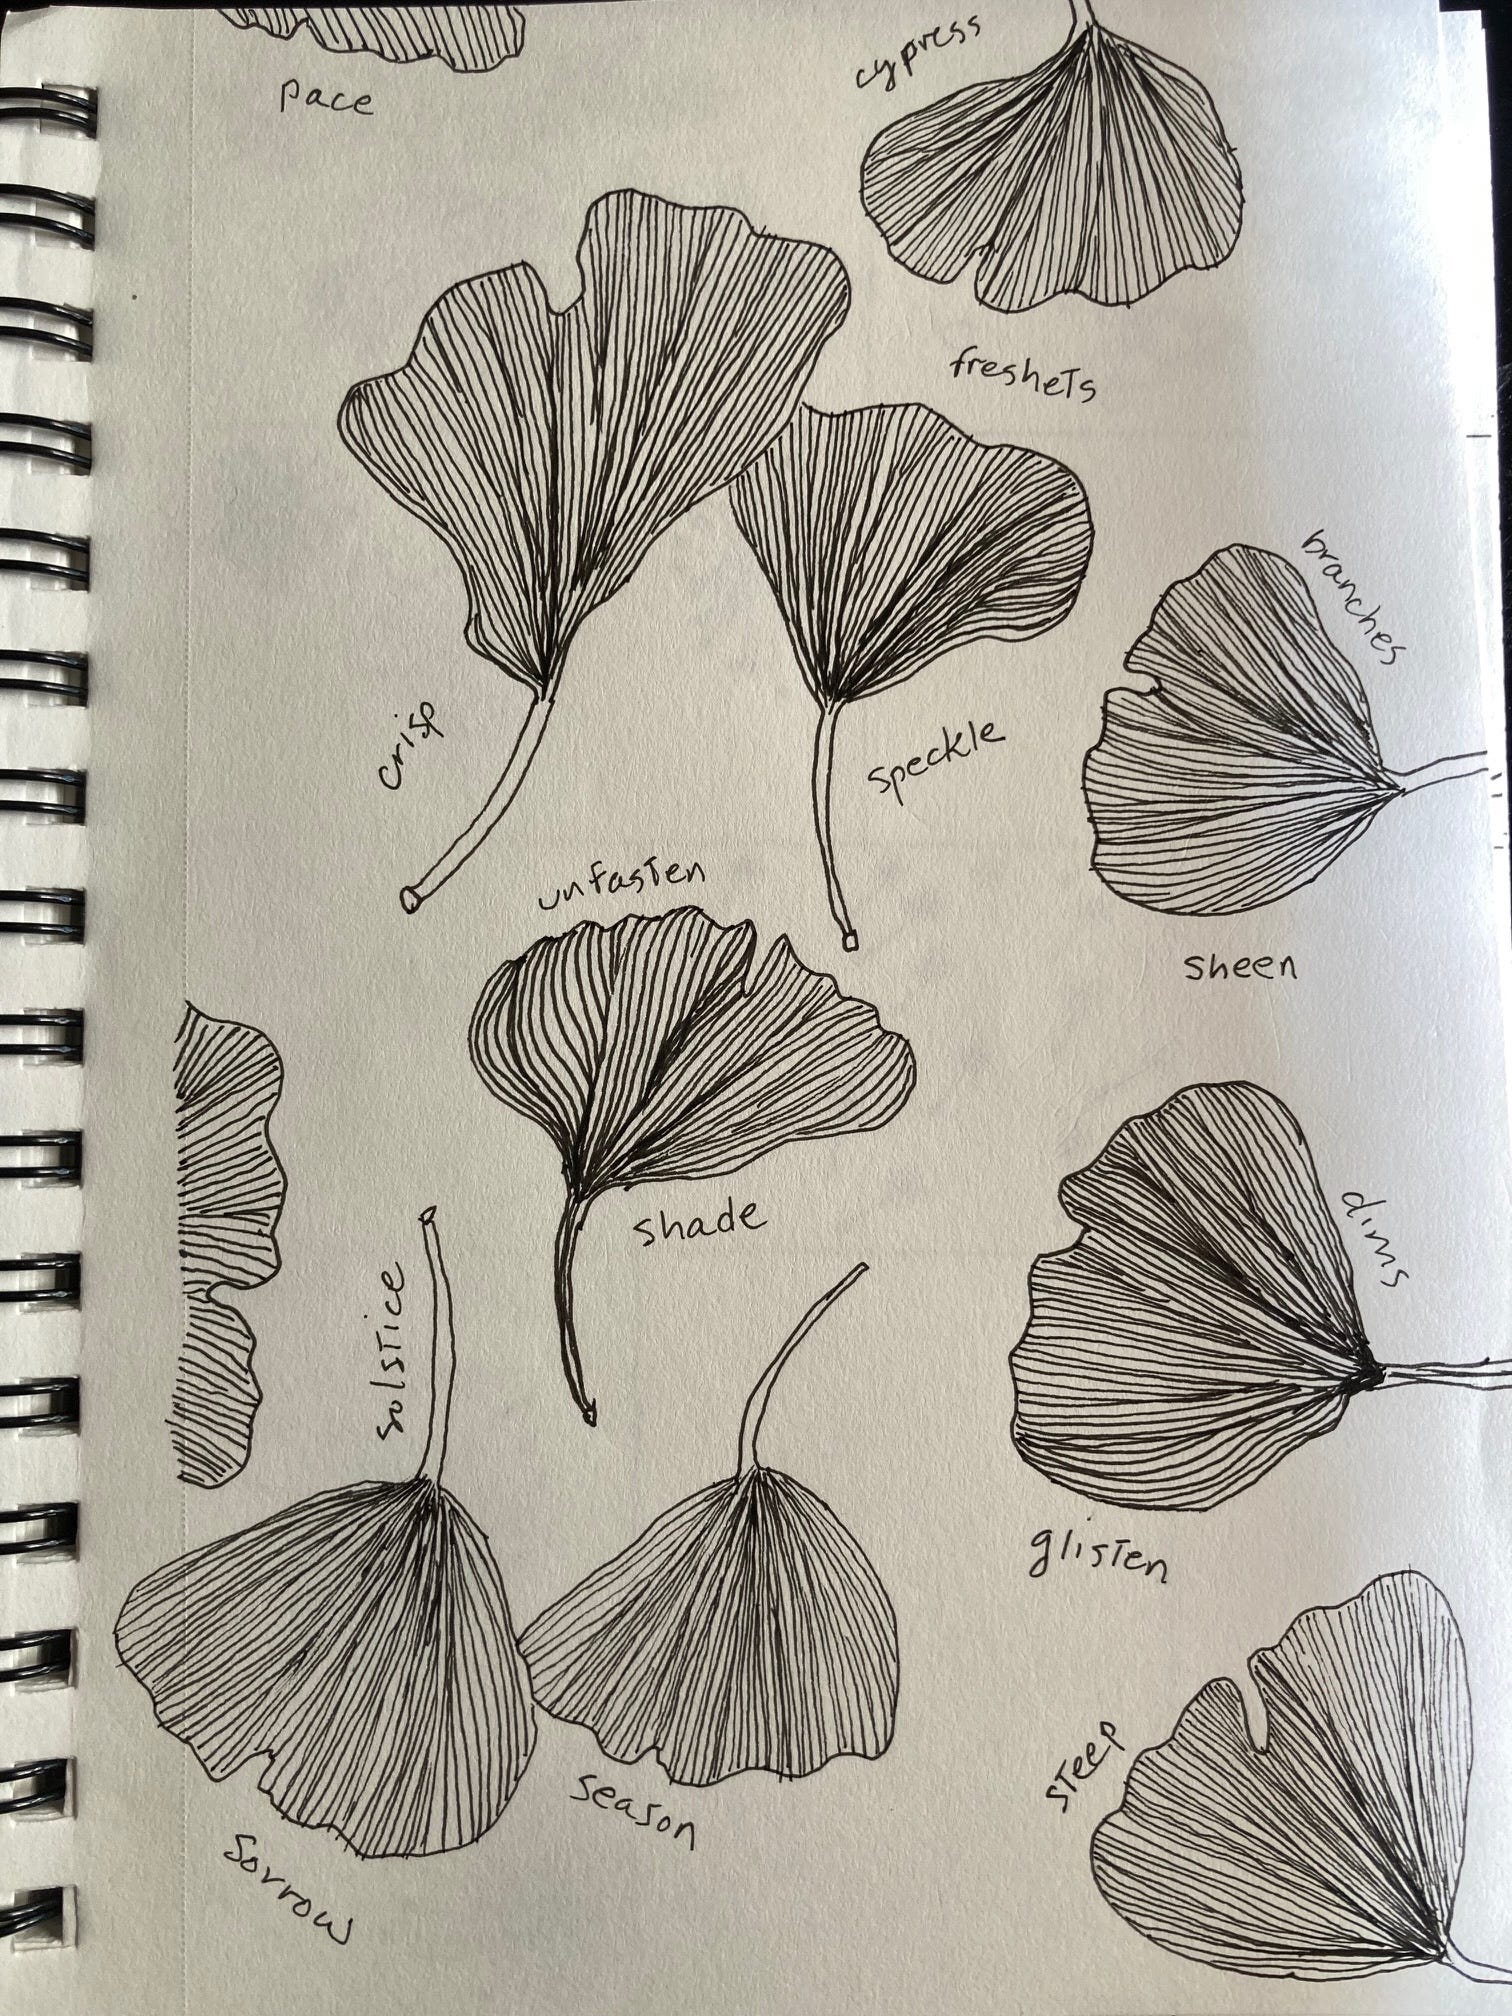 pace
cypress
freshets
branches
crisp
speckle
unfasten
sheen
shade
dims
solstice
glisten
steep
season
sorrow